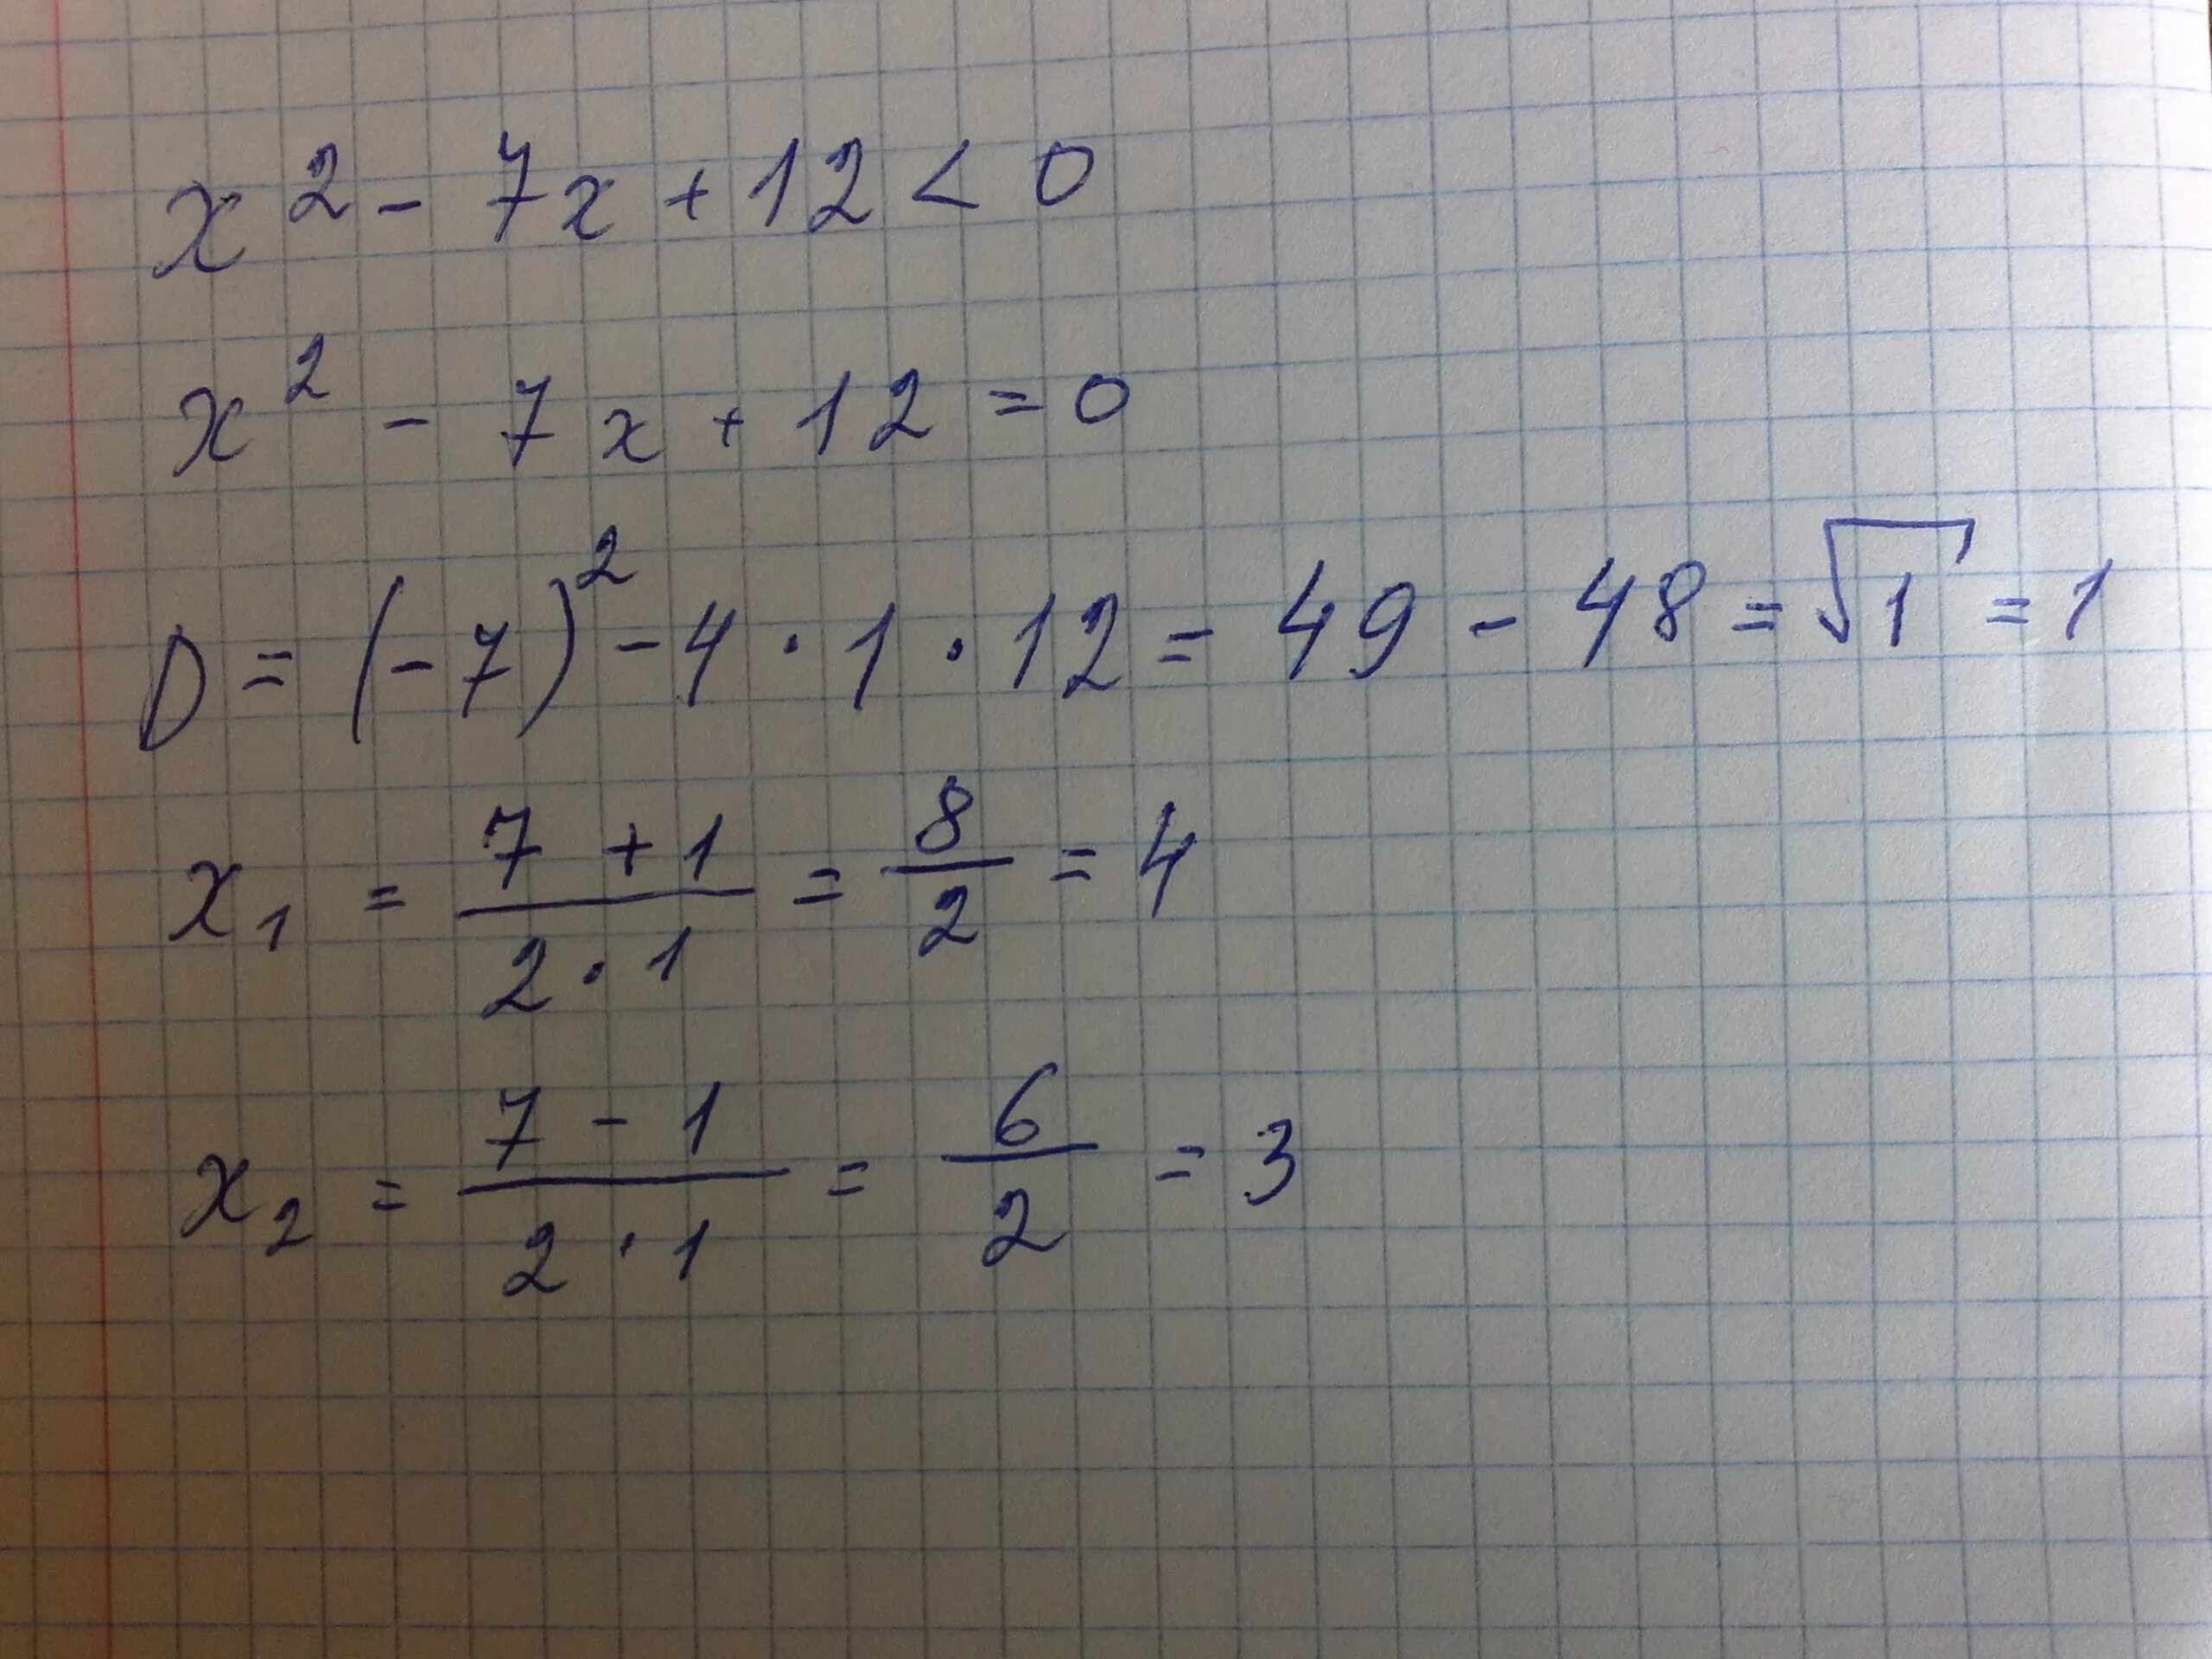 x² - 7x + 12 < 0
x² - 7x + 12 = 0
D = (-7)² - 4 · 1 · 12 = 49 - 48 = √1 = 1
x₁ = (7 + 1)/(2 · 1) = 8/2 = 4
x₂ = (7 - 1)/(2 · 1) = 6/2 = 3